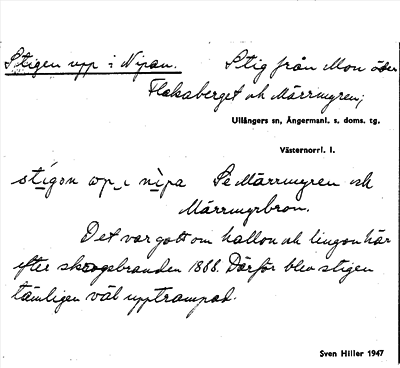 Stigen upp i Nipan. Stig från Mon över
Flakaberget och Märrmyren;
Ullångers sn, Ångermanl. s. doms. tg.
Västernorrl. l.
stigon op i nipa Se Märrmyren och
Märrmyrbron.
Det var gott om hallon och lingon här
efter skogsbranden 1888. Därför blev stigen
tämligen väl upptrampad.
Sven Hiller 1947